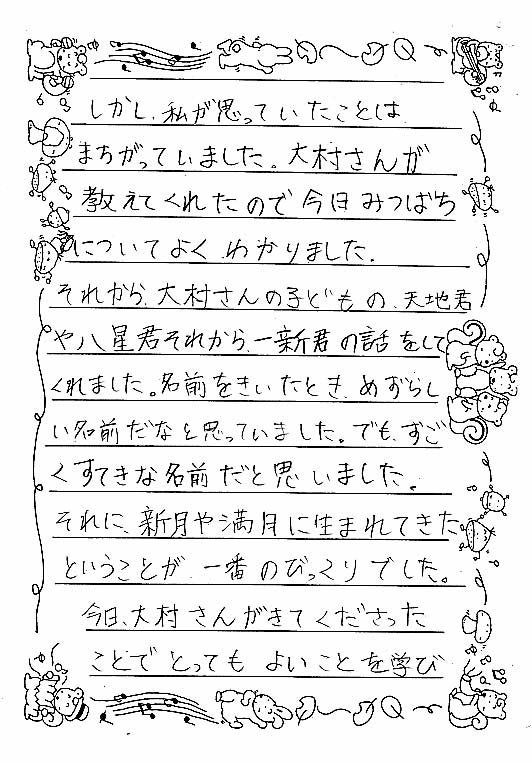 しかし、私が思っていたことは
まちがっていました。大村さんが
教えてくれたので今日みつばち
についてよくわかりました。
それから、大村さんの子どもの、天地君
や八星君それから、一新君の話をして
くれました。名前をきいたとき、めずらし
い名前だなと思っていました。でも、すご
くすてきな名前だと思いました。
それに、新月や満月に生まれてきた
ということが、一番のびっくりでした。
今日、大村さんがきてくださった
ことでとってもよいことを学び